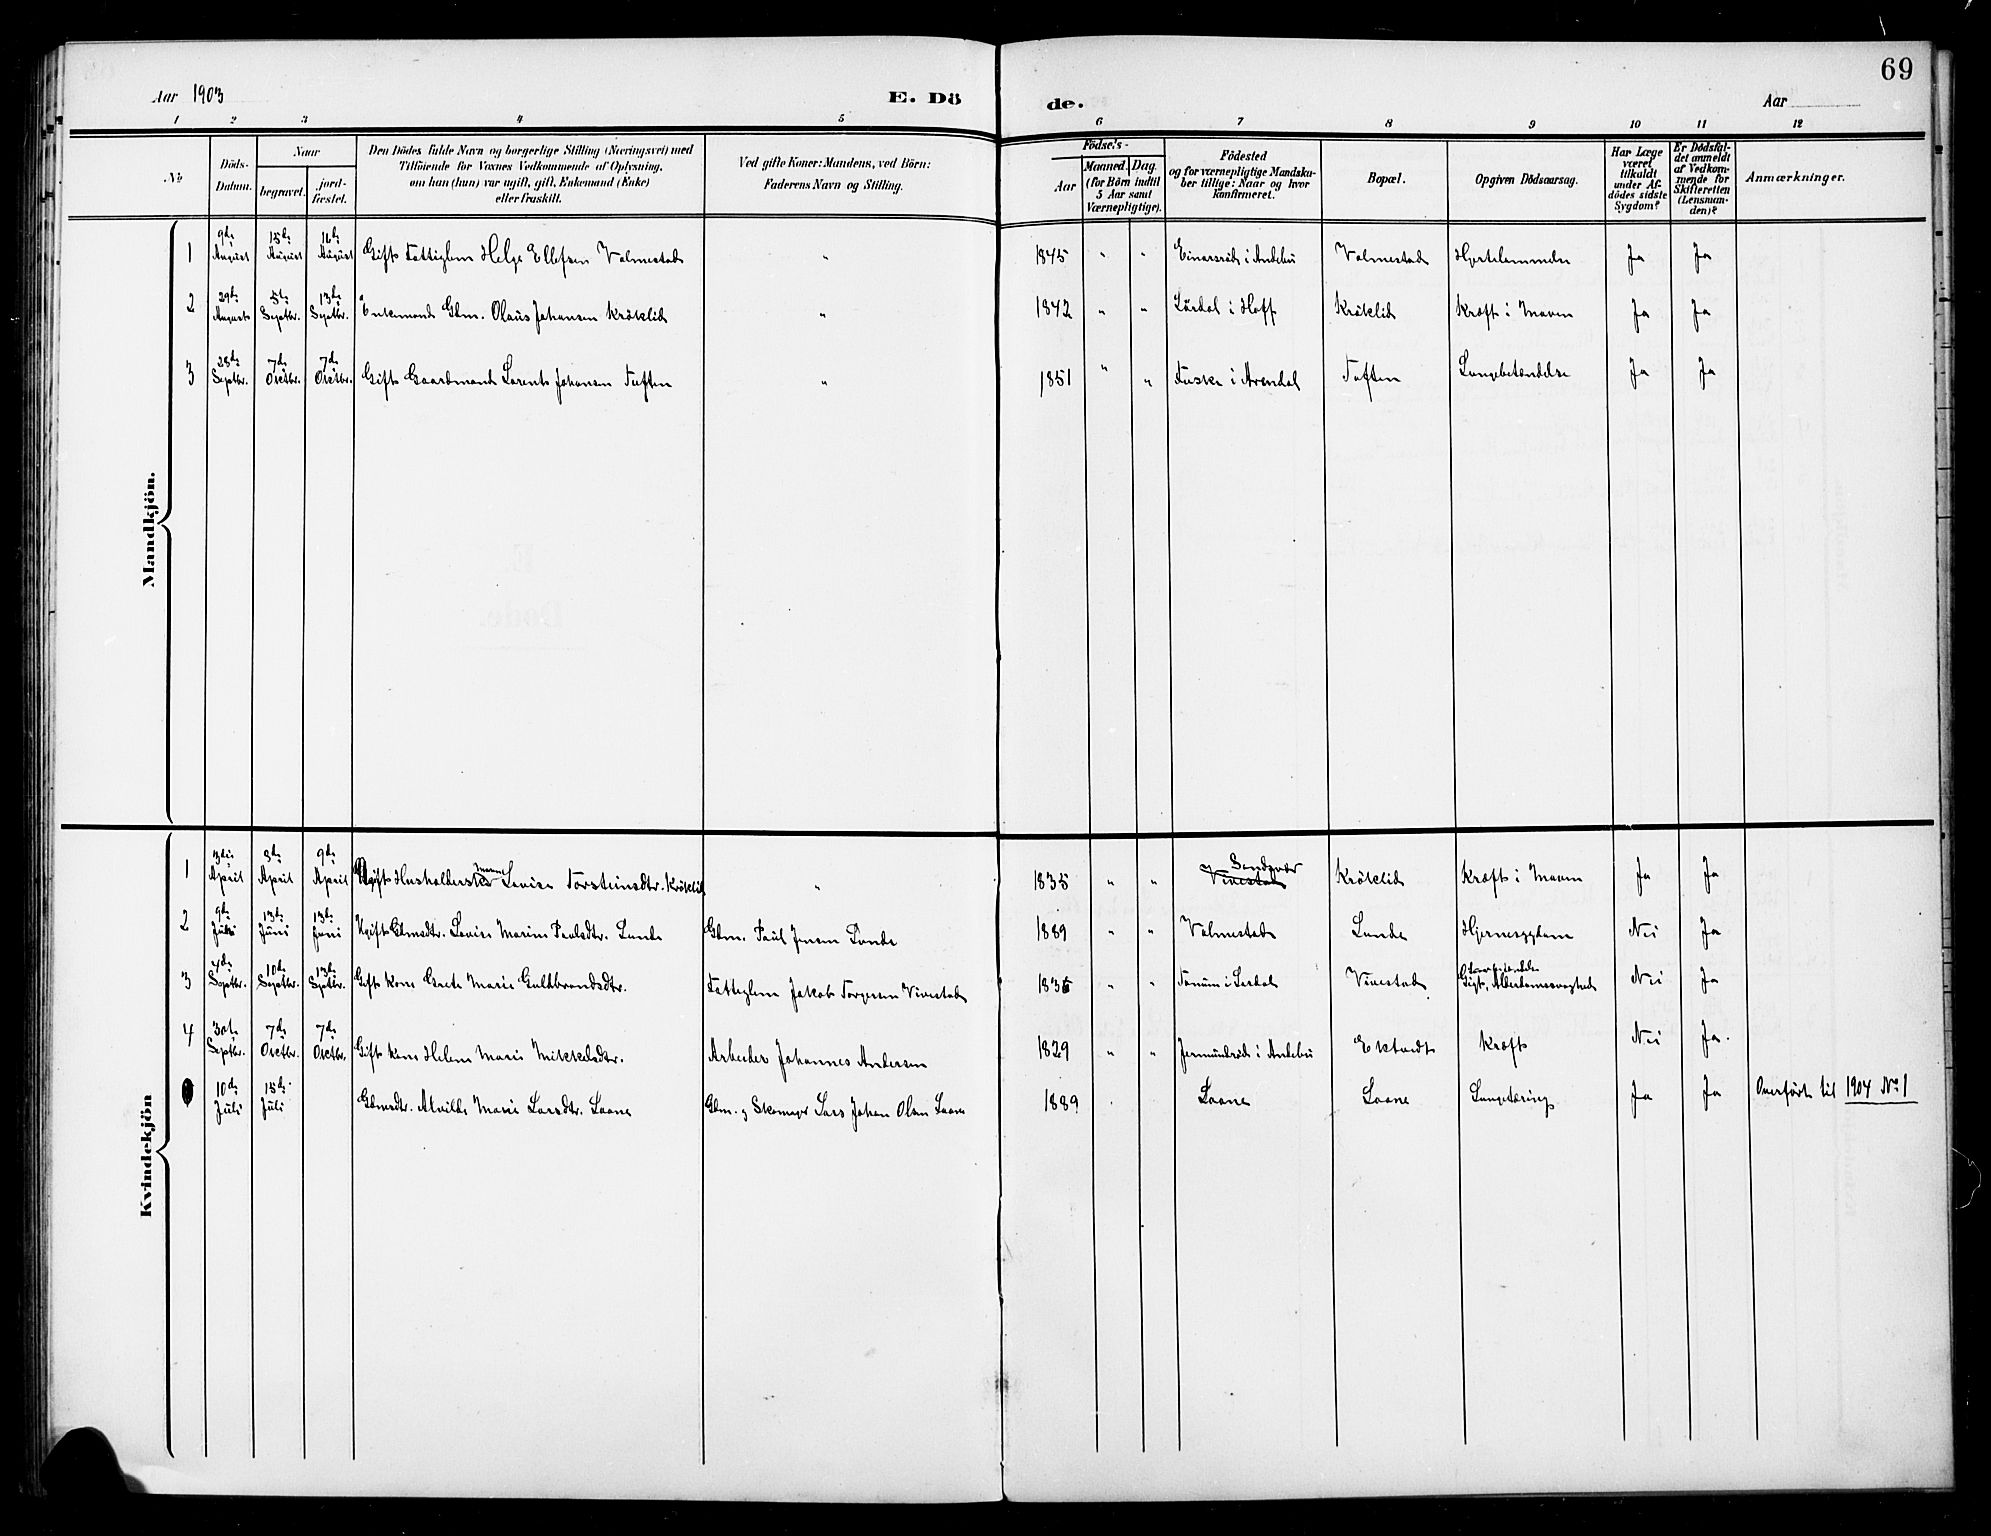 69
Aar 1903
E. Dö
de.
Aar
1 2 3 4 5 6 7 8 9 10 11 12
No
Döds-
Datum.
Naar
begravet.
jord-
fæstet.
Den Dödes fulde Navn og borgerlige Stilling (Næringsvei) med
Tilföiende for Voxnes Vedkommende af Oplysning,
om han (hun) var ugift, gift, Enkemand (Enke)
eller fraskilt.
Ved gifte Koner: Mandens, ved Börn:
Faderens Navn og Stilling.
Födsels-
Aar
Maaned. Dag.
(for Börn indtil
5 Aar samt
Værnepligtige).
Födested
og for værnepligtige Mandska-
ber tillige: Naar og hvor
konfirmeret.
Bopæl.
Opgiven Dödsaarsag.
Har Læge
været
tilkaldt
under Af-
dödes sidste
Sygdom?
Er Dödsfal-
det anmeldt
af Vedkom-
mende for
Skifteretten
(Lensman-
den)?
Anmærkninger.
Mandkjön.
1 9de August 15de August 16de August Gift Fattiglem Helge Ellefsen Valmestad " 1845 " " Einarsrød i Andebu Valmestad Hjertelammelse Ja Ja
2 29de August 5te Septbr. 13de Septbr. Enkemand Gbm. Olaus Johansen Krøklid " 1842 " " i Hoff Krøklid Kræft i Maven Ja Ja
3 28de Septbr. 7de Octbr. 7de Octbr. Gift Gaardmand Lorents Johansen Tuften " 1851 " " i Arendal Tuften Lungebetændelse Ja Ja
Kvindekjön
1 3die April 8de April 9de April Ugift Lovise Torsteinsdtr. Krøklid " 1835 " " Sandsvær Vivestad Krøklid Kræft i Maven Ja Ja
2 9de Juni 13de Juni 13de Juni Ugift Gbmsdtr. Lovise Marine Paulsdtr. Lunde Gbm. Paul Jensen Lunde 1889 " " Valmestad Lunde Hjernesygdom Nei Ja
3 4de Septbr. 10de Septbr. 13de Septbr. Gift Kone Grete Marie Guldbrandsdtr. Fattiglem Jakob Torgersen Vivestad " " Vivestad Gigt, Alderdomssvaghed Nei Ja
4 30te Septbr. 7de Octbr. 7de Octbr. Gift Kone Helene Marie Mikkelsdtr. Arbeider Johannes Andersen 1829 " " Jermundrød i Andebu Ektvedt Kræft Nei Ja.
10de Juli 15de Juli Gbmsdtr. Alvilde Marie Larsdtr. Laane Gbm. og Skomager Lars Johan Olsen Laane 1889 Laane Laane Lungetæring Ja Ja Overført til 1904 No 1